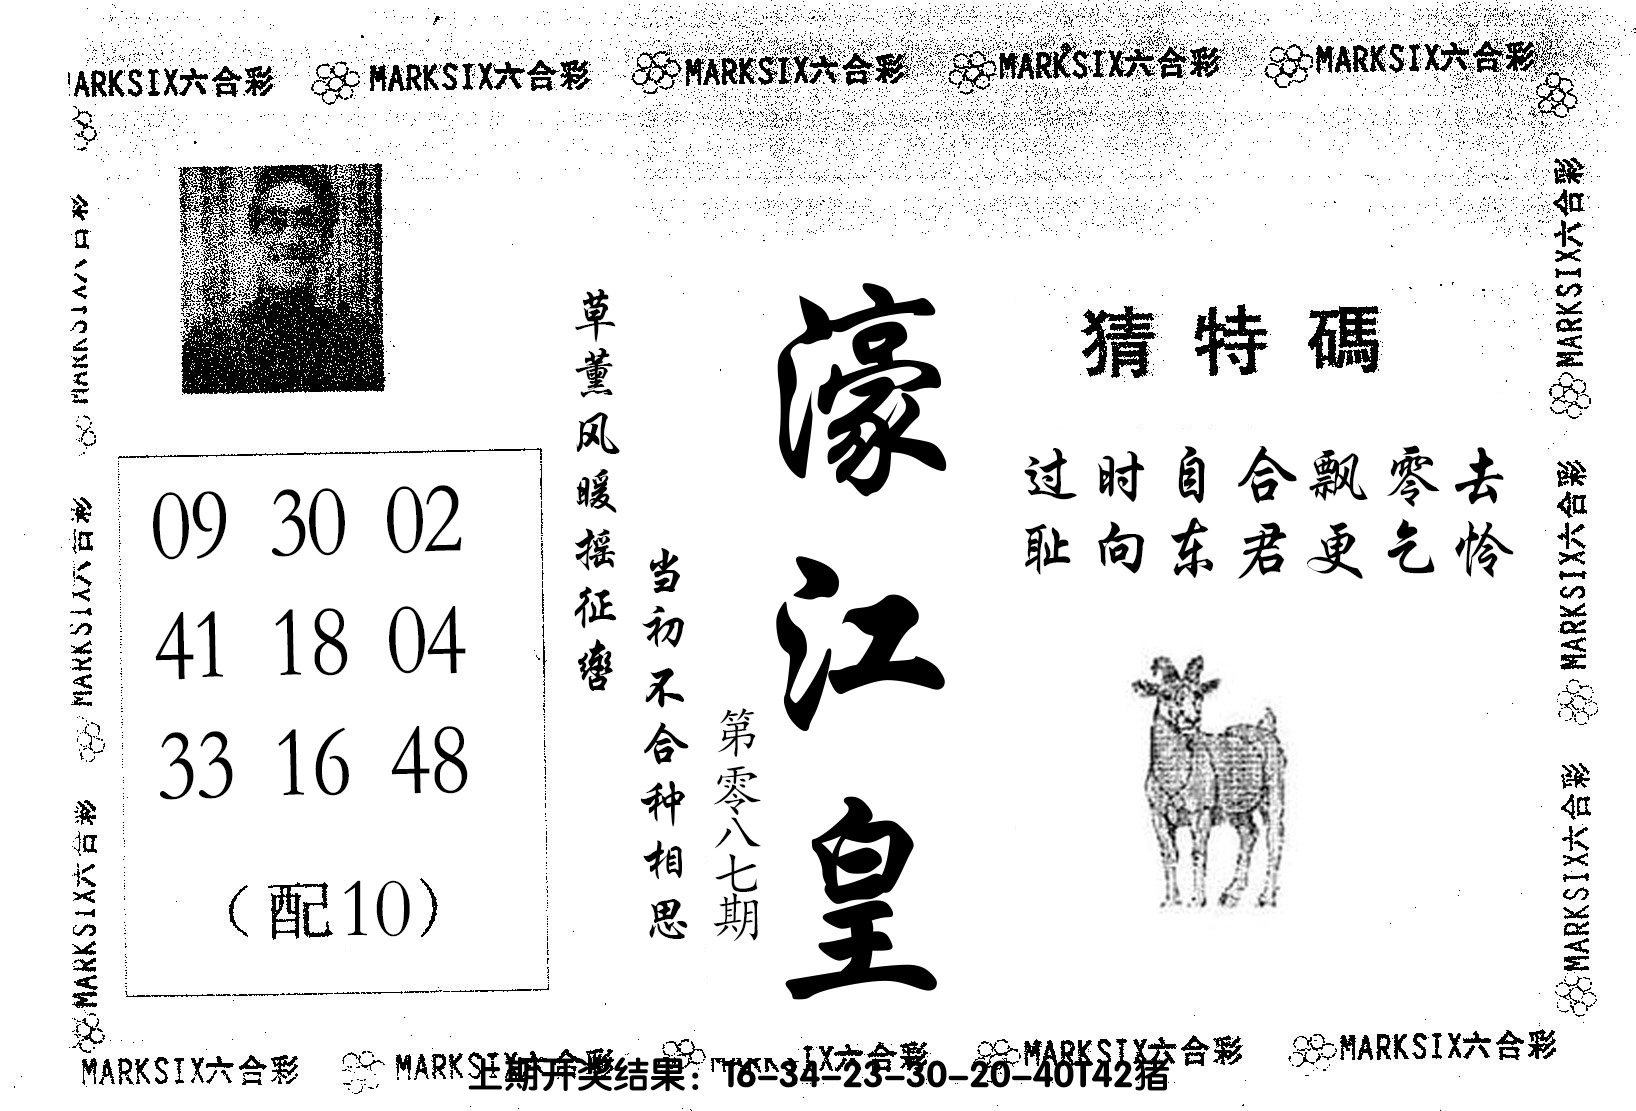 MARKSIX六合彩 MARKSIX六合彩 MARKSIX六合彩 MARKSIX六合彩 MARKSIX六合彩
猜特碼
过时自合飘零去
耻向东君更乞怜
濠江皇
第零八七期
当初不合种相思
草薰风暖摇征辔
09 30 02
41 18 04
33 16 48
（配10）
MARKSIX六合彩
MARKSIX六合彩
MARKSIX六合彩
MARKSIX六合彩
MARKSIX六合彩
MARKSIX六合彩
MARKSIX六合彩 MARKSIX六合彩 MARKSIX六合彩 MARKSIX六合彩 MARKSIX六合彩
上期开奖结果：16-34-23-30-20-40T42猪